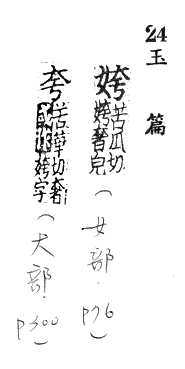 24
玉篇
姱 苦瓜切
姱奢皃
(女部. P76)
夸 苦華切奢
姱字
(大部. P300)